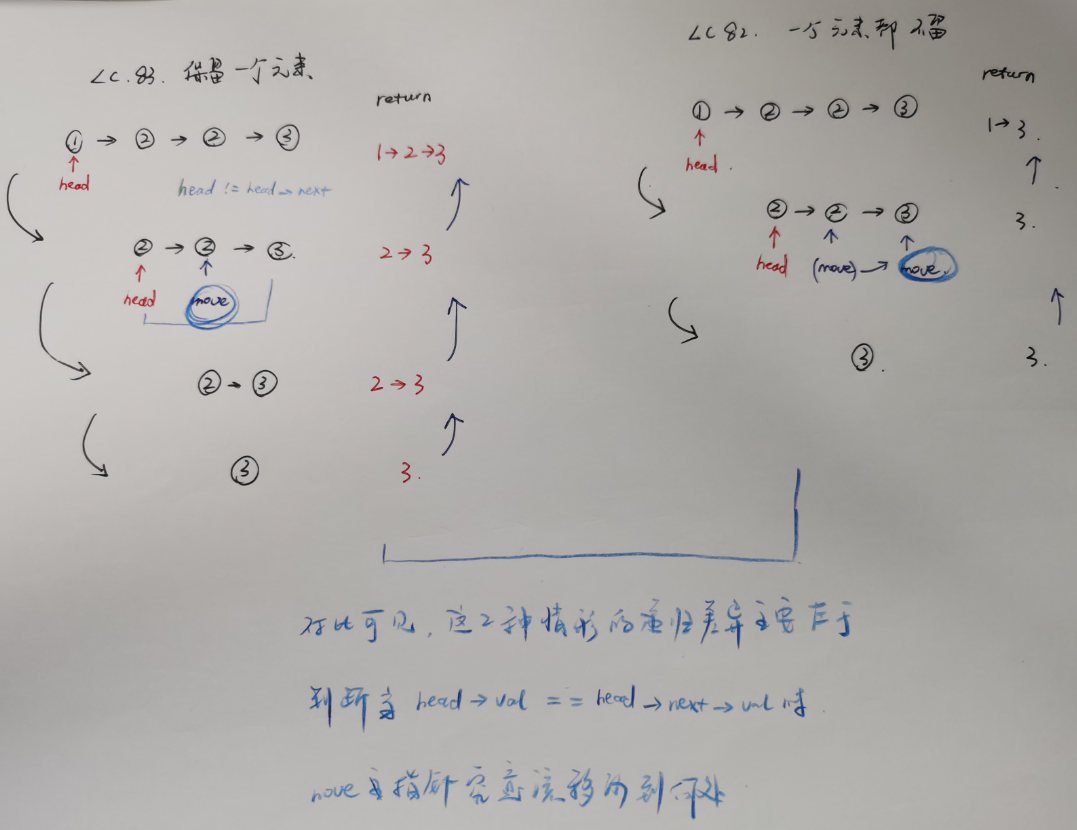 LC.83. 保留一个元素
return
① → ② → ② → ③
1→2→3
head
head != head→next
② → ② → ③.
2→3
head
move
② → ③
2→3
③
3.
LC82. 一个元素都不留
return
① → ② → ② → ③
1→3.
head.
② → ② → ③
3.
head (move) → move.
③.
3.
对比可见,这2种情形的递归差异主要在于
判断 head→val == head→next→val 时
move 指针究竟该移动到何处